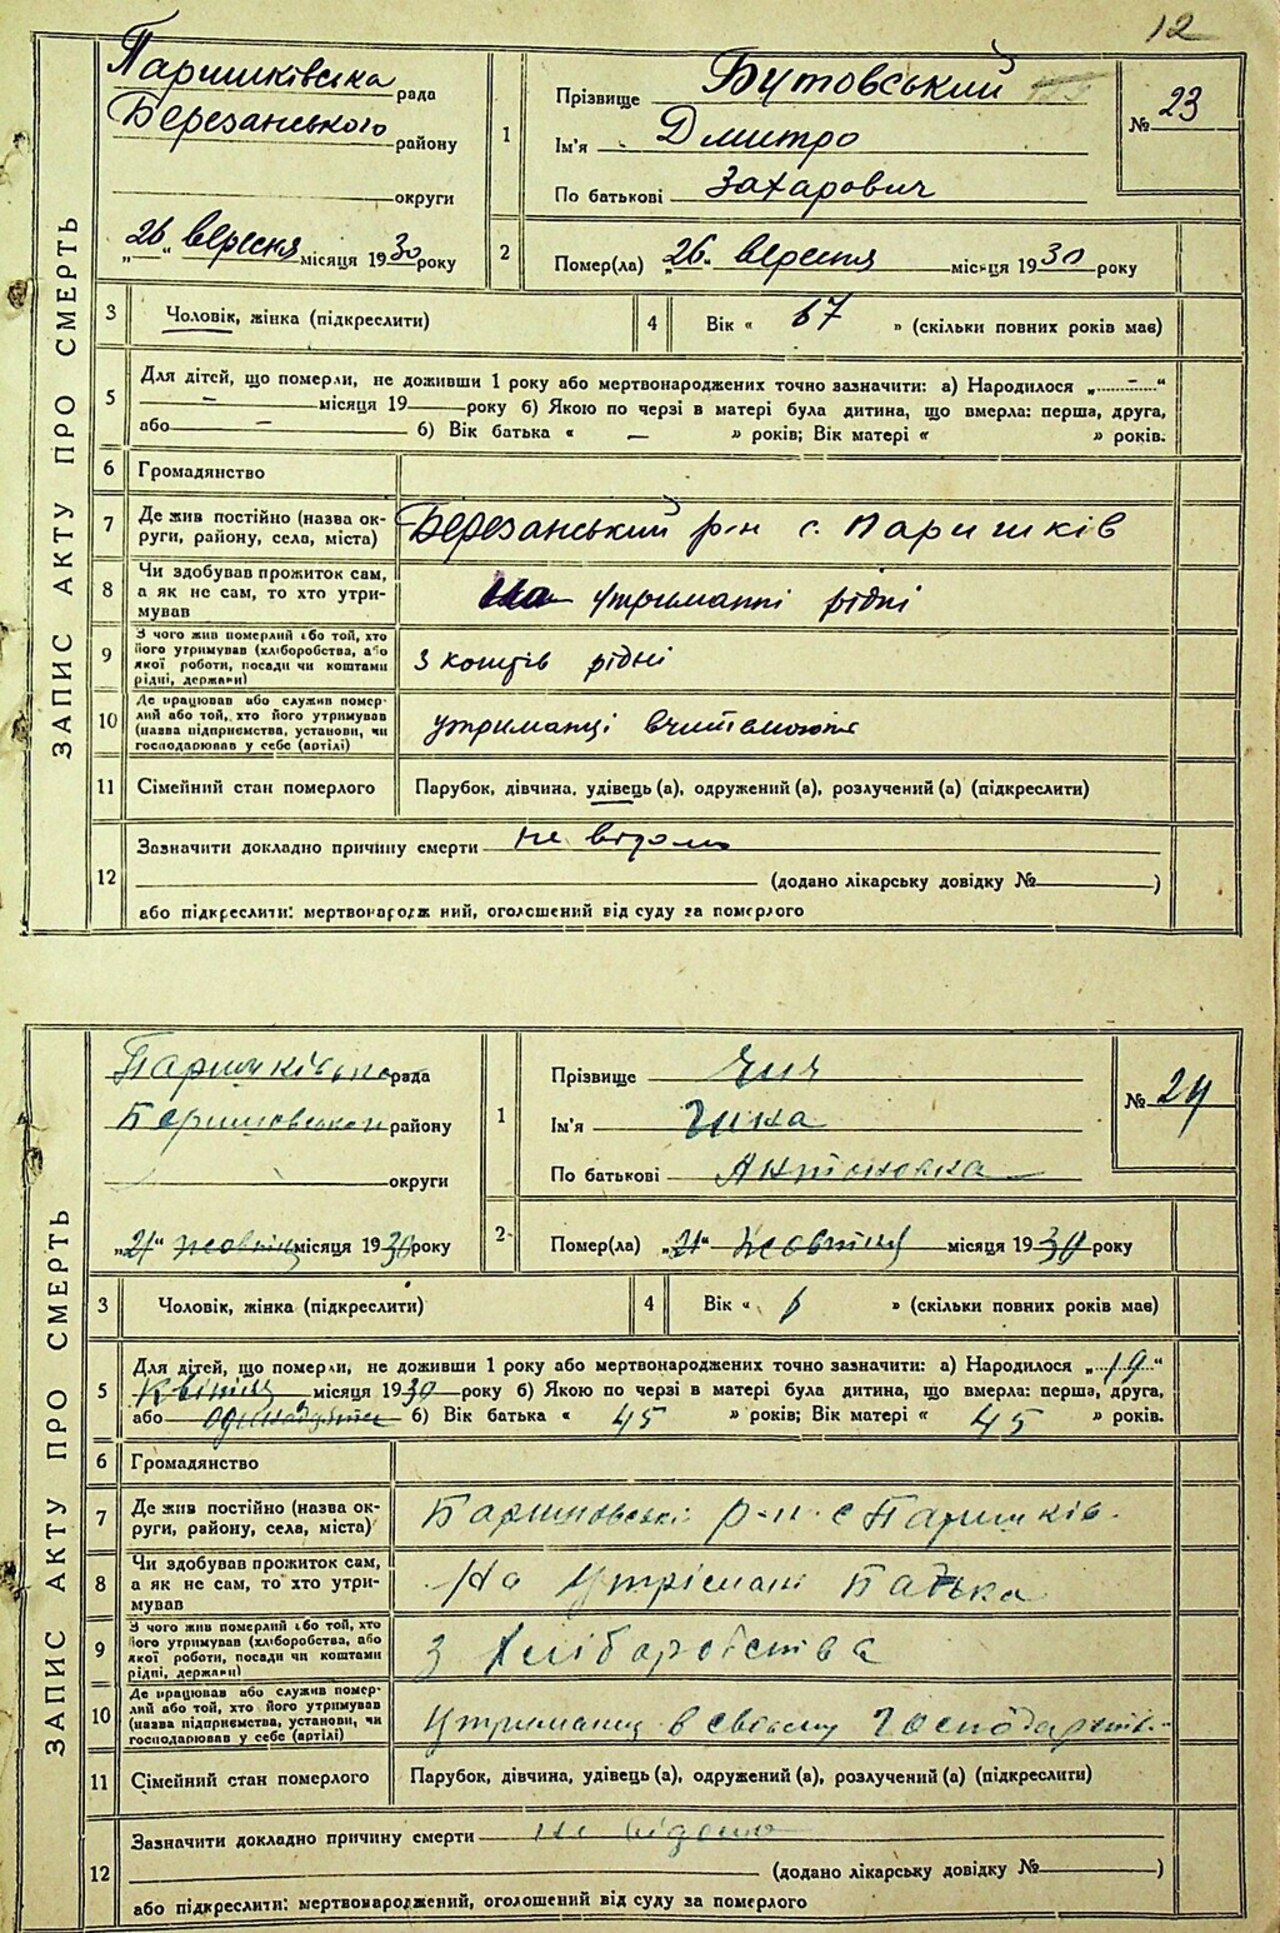 12
ЗАПИС АКТУ ПРО СМЕРТЬ
Паришківська рада
Березанського району
округи
„26“ вересня місяця 1930 року
1
Прізвище Бутовський
Ім'я Дмитро
По батькові Захарович
№ 23
2
Помер(ла) „26“ вересня місяця 1930 року
3 Чоловік, жінка (підкреслити)
4 Вік « 67 » (скільки повних років має)
5 Для дітей, що померли, не доживши 1 року або мертвонароджених точно зазначити: а) Народилося „ - “
- місяця 19 року б) Якою по черзі в матері була дитина, що вмерла: перша, друга,
або - б) Вік батька « - » років; Вік матері « » років.
6 Громадянство
7 Де жив постійно (назва округи, району, села, міста) Березанський р-н с. Паришків
8 Чи здобував прожиток сам, а як не сам, то хто утримував На утриманні рідні
9 З чого жив померлий або той, хто його утримував (хліборобства, або якої роботи, посади чи коштами рідні, держави) з коштів рідні
10 Де працював або служив померлий або той, хто його утримував (назва підприємства, установи, чи господарював у себе (артілі) утриманці
11 Сімейний стан померлого Парубок, дівчина, удівець (а), одружений (а), розлучений (а) (підкреслити)
12 Зазначити докладно причину смерти не відомо
(додано лікарську довідку № )
або підкреслити: мертвонароджений, оголошений від суду за померлого
ЗАПИС АКТУ ПРО СМЕРТЬ
Паришківська рада
району
округи
„21“ жовтня місяця 1930 року
1
Прізвище
Ім'я
По батькові Антоновна
№ 24
2
Помер(ла) „21“ жовтня місяця 1930 року
3 Чоловік, жінка (підкреслити)
4 Вік « » (скільки повних років має)
5 Для дітей, що померли, не доживши 1 року або мертвонароджених точно зазначити: а) Народилося „19“
Квітня місяця 1930 року б) Якою по черзі в матері була дитина, що вмерла: перша, друга,
або б) Вік батька « 45 » років; Вік матері « 45 » років.
6 Громадянство
7 Де жив постійно (назва округи, району, села, міста) р-н. с Паришків.
8 Чи здобував прожиток сам, а як не сам, то хто утримував На Утрімані Батька
9 З чого жив померлий або той, хто його утримував (хліборобства, або якої роботи, посади чи коштами рідні, держави) З Хліборобства
10 Де працював або служив померлий або той, хто його утримував (назва підприємства, установи, чи господарював у себе (артілі) в своему
11 Сімейний стан померлого Парубок, дівчина, удівець (а), одружений (а), розлучений (а) (підкреслити)
12 Зазначити докладно причину смерти не відомо
(додано лікарську довідку № )
або підкреслити: мертвонароджений, оголошений від суду за померлого